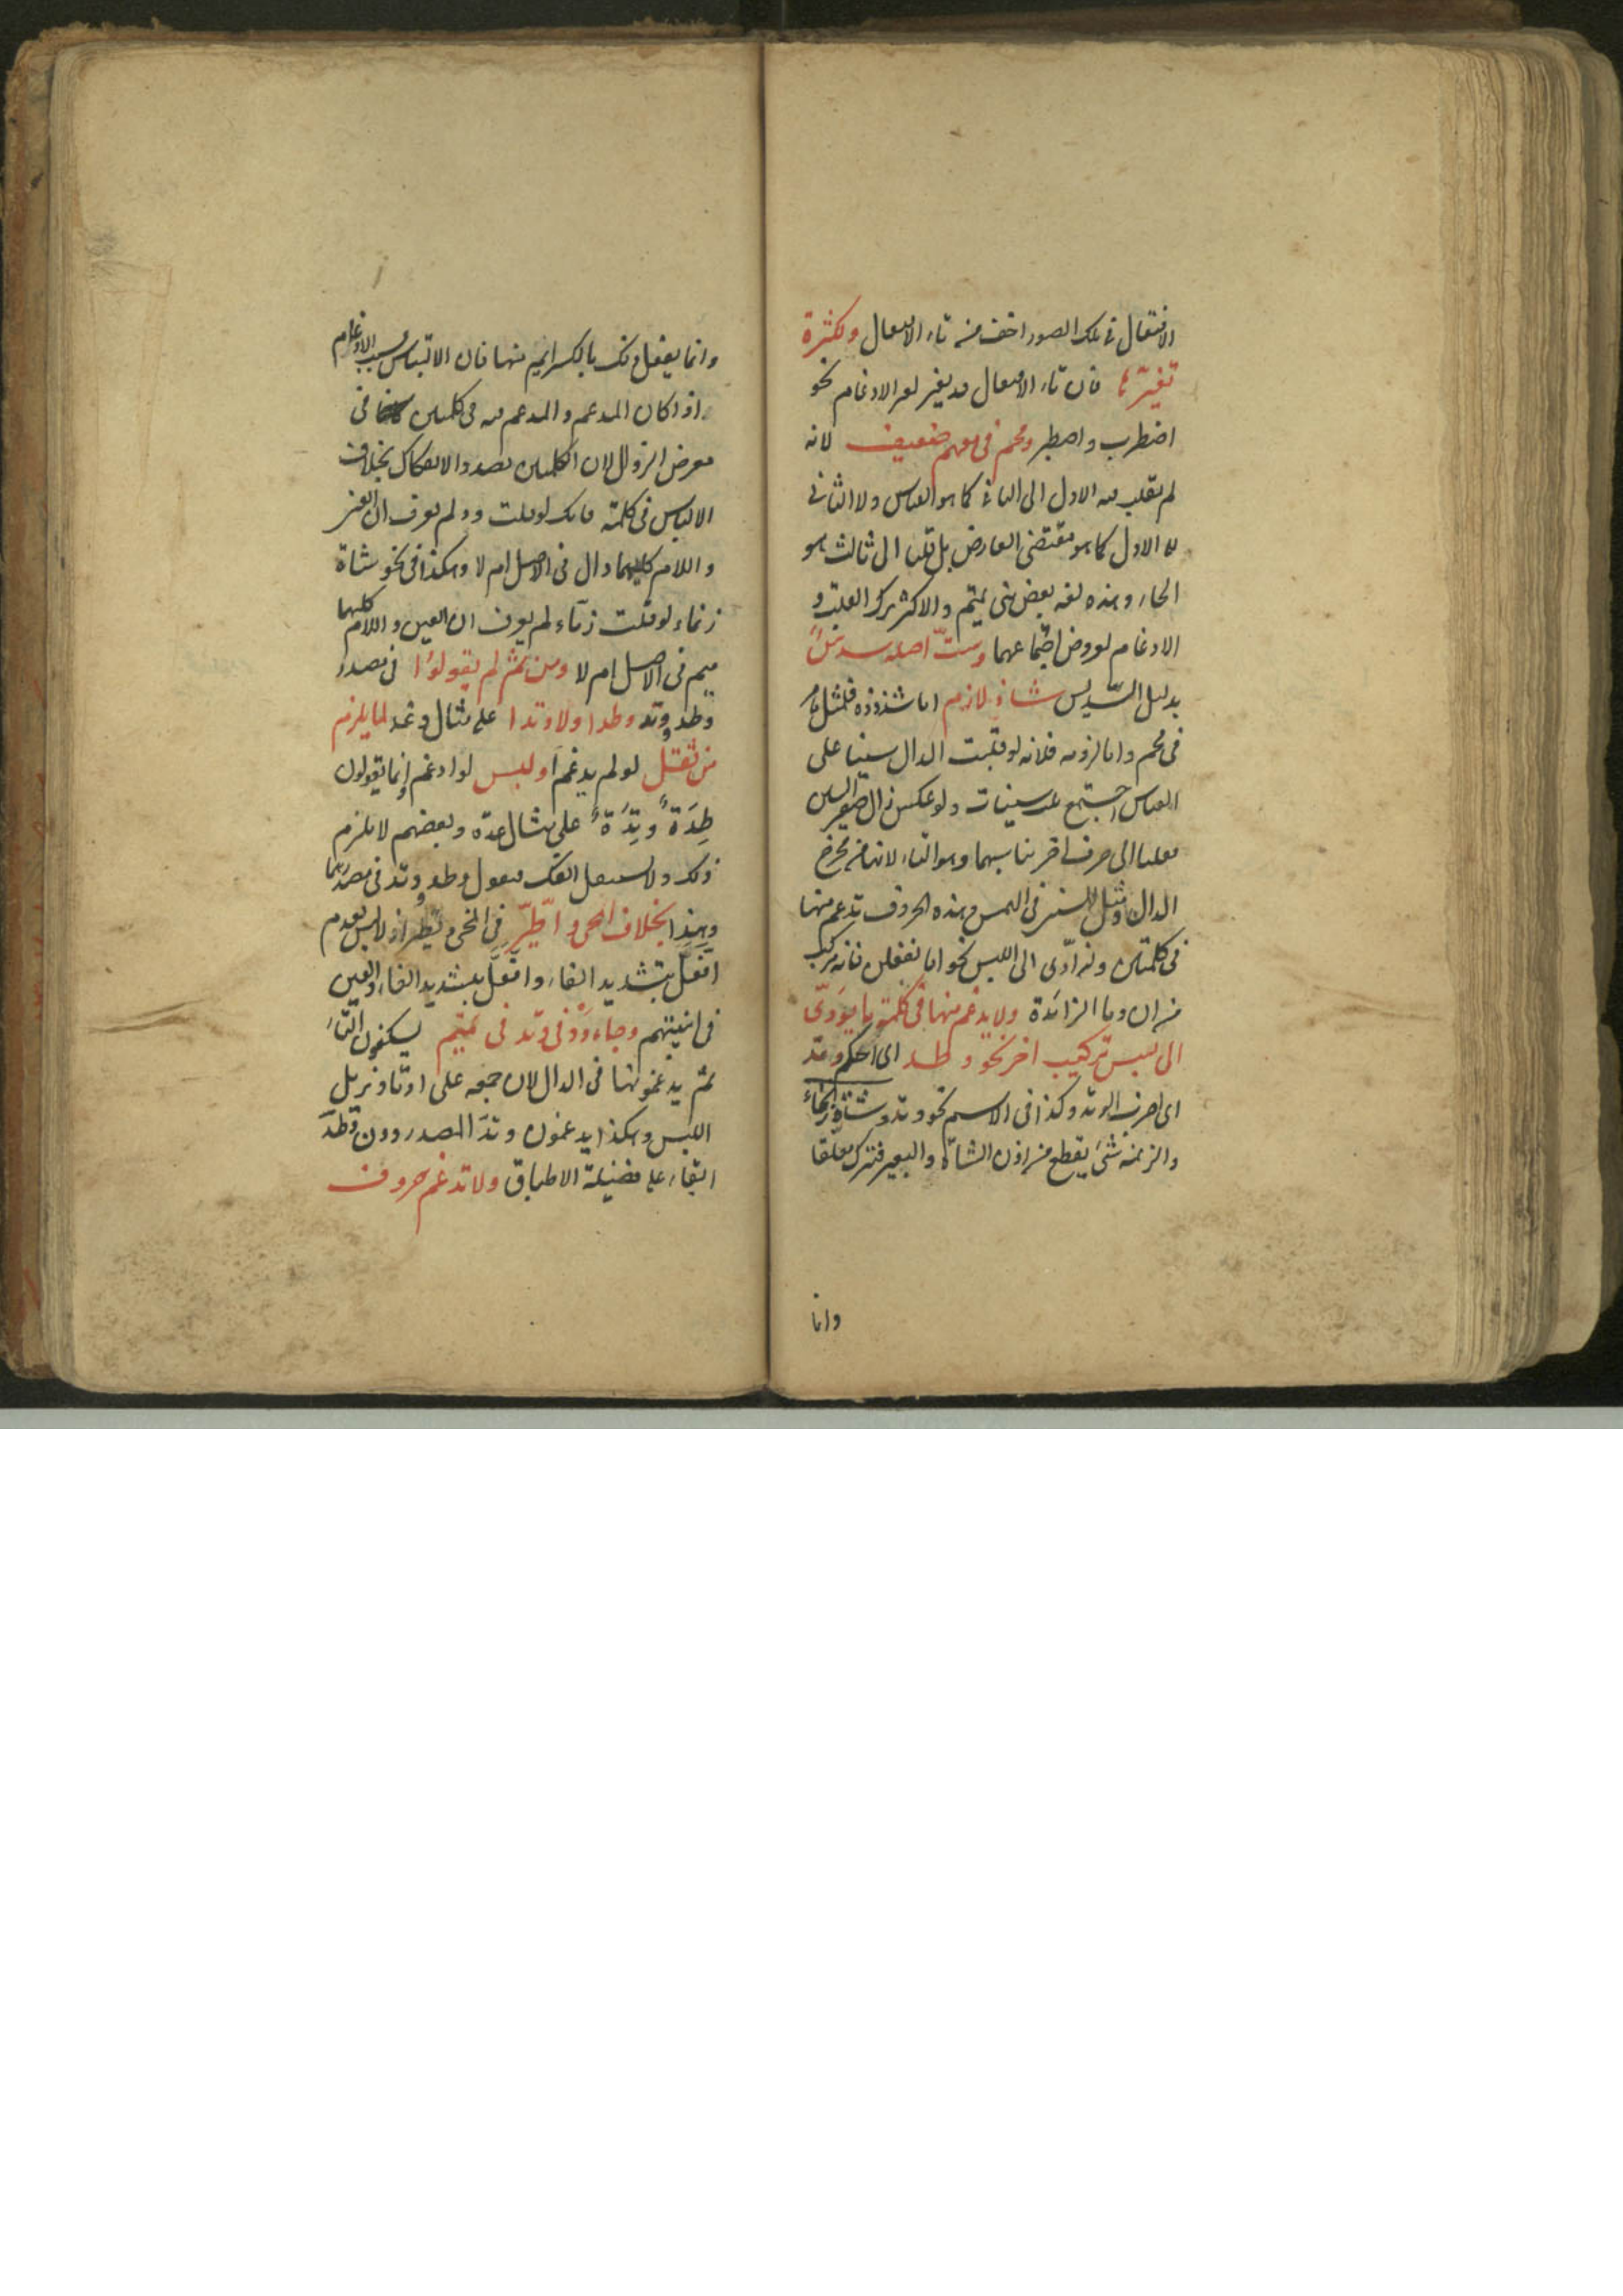 الافتعال في تلك الصور اخف من تاء الافتعال ولكثرة
تغيرها فان تاء الافتعال قد يغير لغير الادغام نحو
اضطرب واصطبر ومحم في معهم ضعيف لانه
لم يقلب فيه الاول الى الثاني كما هو القياس ولا الثاني
الى الاول كما هو مقتضى العارض بل قلبا الى ثالث هو
الحاء وهذه لغة بعض بني تميم والاكثر ترك القلب و
الادغام لعروض اجتماعهما وستّ اصله سدس
بدليل التسديس شاذ لازم اما شذوذه فلمثل ما مر
في محم واما لزومه فلانه لو قلبت الدال سينا على
القياس اجتمع ثلث سينات ولو عكس زال صفير السين
فقلبا الى حرف اخر يناسبهما وهو التاء لانها من مخرج
الدال ومثل السين في الهمس وهذه الحروف تدغم منها
في كلمتين وان ادّى الى اللبس نحو اما تفعلن فانه مركب
من ان وما الزائدة ولا يدغم منها في كلمة ما يؤدّى
الى لبس تركيب اخر نحو وطد اى احكم ووتد
اى اضرب الوتد وكذا في الاسم نحو وتد وشاة زنماء
والزنمة شئ يقطع من اذن الشاة والبعير فترك معلقا
وانما
وانما يفعل ذلك بالكرايم منها فان الالتباس بسبب الادغام
اذا كان المدغم والمدغم فيه في كلمتين في
معرض الزوال لان الكلمتين بصدد الانفكاك بخلاف
الالباس في كلمة فانك لو قلت ودّ لم يعرف ان العين
واللام كليهما دال في الاصل ام لا وهكذا في نحو شاة
زنماء لو قلت زمّاء لم يعرف ان العين واللام كليهما
ميم في الاصل ام لا ومن ثم لم يقولوا في مصدر
وطد ووتد وطدا ولا وتدا على مثال وعد لما يلزم
من ثقل لو لم يدغم او لبس لو ادغم وانما يقولون
طِدَةً وتِدَةً على مثال عدة وبعضهم لا يلزم
ذلك ولا يستثقل الفك فيقول وطد ووتد في مصدرهما
وهذا بخلاف امّحى واطّيّر في انمحى وتطيّر اذ لا لبس لعدم
افّعل بتشديد الفاء وافّعّل بتشديد الفاء والعين
في ابنيتهم وجاء ودّ في وتد في تميم يسكنون التاء
ثم يدغمونها في الدال لان جمعه على اوتاد يزيل
اللبس وهكذا يدغمون وتد المصدر دون وطد
ابقاء على فضيلة الاطباق ولا تدغم حروف